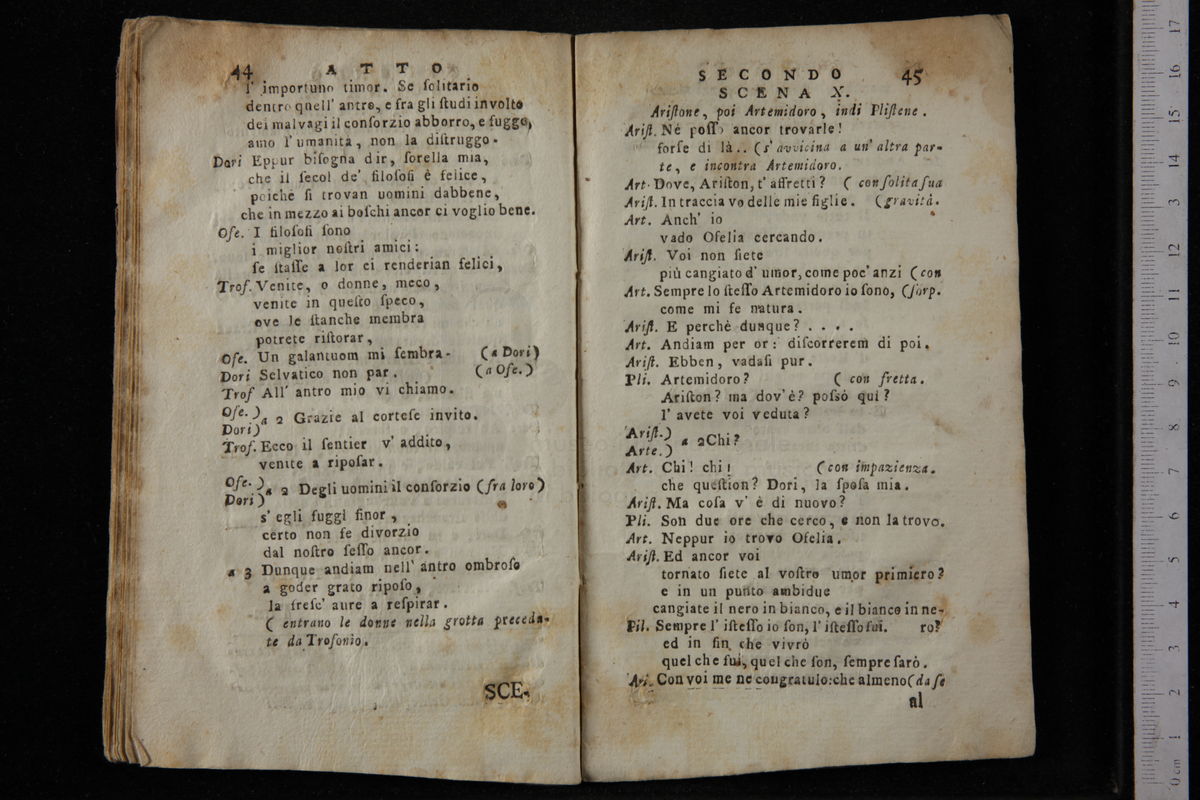 44 ATTO
l' importuno timor. Se ſolitario
dentro quell' antro, e fra gli ſtudi involto
dei malvagi il conſorzio abborro, e fuggo,
amo l'umanità, non la diſtruggo.
Dori Eppur biſogna dir, ſorella mia,
che il ſecol de' filoſofi è felice,
poichè ſi trovan uomini dabbene,
che in mezzo ai boſchi ancor ci voglio bene.
Ofe. I filoſofi ſono
i miglior noſtri amici:
ſe ſtaſſe a lor ci renderian felici,
Trof. Venite, o donne, meco,
venite in queſto ſpeco,
ove le ſtanche membra
potrete riſtorar,
Ofe. Un galantuom mi ſembra. (a Dori)
Dori Selvatico non par. (a Ofe.)
Trof All' antro mio vi chiamo.
Ofe. )
Dori) a 2 Grazie al corteſe invito.
Trof. Ecco il ſentier v' addito,
venite a ripoſar.
Ofe. )
Dori) a 2 Degli uomini il conſorzio (fra loro)
s' egli fuggì finor,
certo non fe divorzio
dal noſtro ſeſſo ancor.
a 3 Dunque andiam nell' antro ombroſo
a goder grato ripoſo,
la freſc' aure a reſpirar.
( entrano le donne nella grotta preceda-
te da Trofonio.
SCE-
SECONDO 45
SCENA X.
Ariſtone, poi Artemidoro, indi Pliſtene.
Ariſt. Nè poſſo ancor trovarle!
forſe di là.. (s' avvicina a un' altra par-
te, e incontra Artemidoro.
Art. Dove, Ariſton, t' affretti? ( con ſolita ſua
Ariſt. In traccia vo delle mie figlie. (gravità.
Art. Anch' io
vado Ofelia cercando.
Ariſt. Voi non ſiete
più cangiato d' umor, come poc' anzi (con
Art. Sempre lo ſteſſo Artemidoro io ſono, (ſorp.
come mi fe natura.
Ariſt. E perchè dunque? . . . .
Art. Andiam per or: diſcorrerem di poi.
Ariſt. Ebben, vadaſi pur.
Pli. Artemidoro? ( con fretta.
Ariſton? ma dov'è? poſsò quì?
l' avete voi veduta?
Ariſt.)
Arte.) a 2 Chi?
Art. Chi! chi! (con impazienza.
che queſtion? Dori, la ſpoſa mia.
Ariſt. Ma coſa v' è di nuovo?
Pli. Son due ore che cerco, e non la trovo.
Art. Neppur io trovo Ofelia.
Ariſt. Ed ancor voi
tornato ſiete al voſtro umor primiero?
e in un punto ambidue
cangiate il nero in bianco, e il bianco in ne-
Pil. Sempre l' iſteſſo io ſon, l' iſteſſo fui. ro?
ed in fin che vivrò
quel che fui, quel che ſon, ſempre ſarò.
Ari. Con voi me ne congratulo: che almeno (da ſe
al
17
16
15
14
13
12
11
10
9
8
7
6
5
4
3
2
1
0 cm